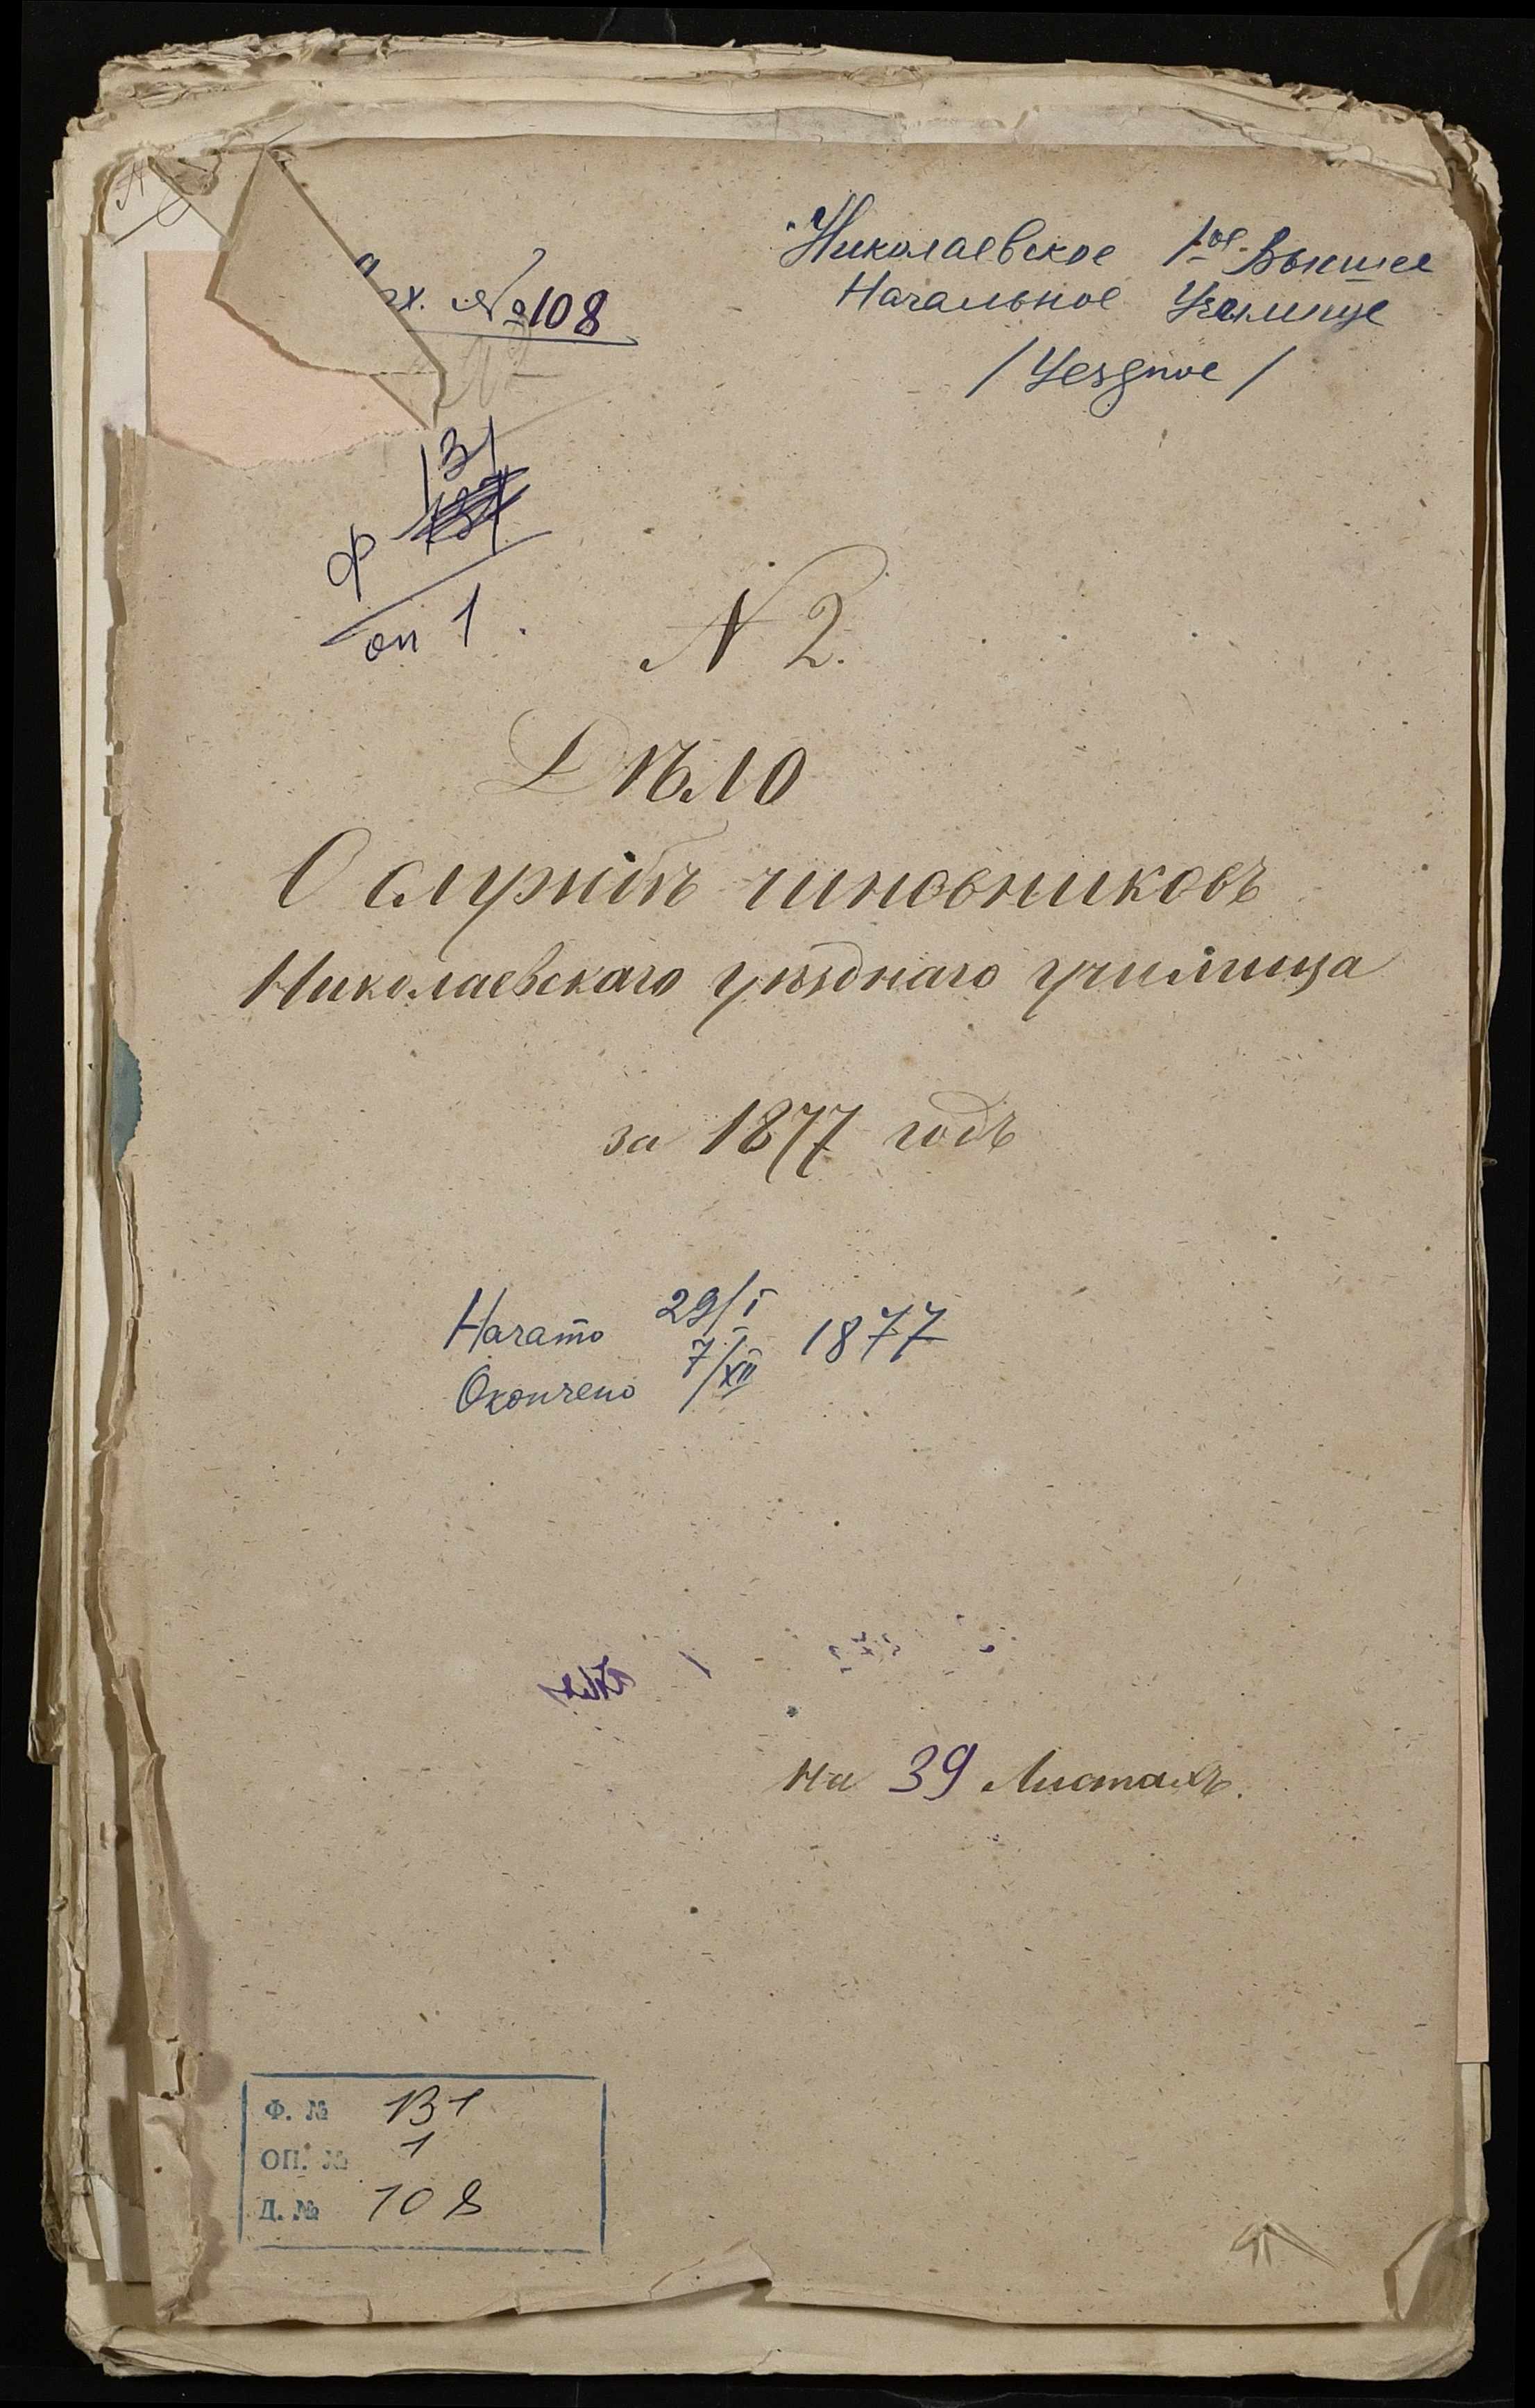 Николаевское 1ое Высшее
Начальное Училище
/ Уездное /
рх. №108
131
ф
оп 1.
N 2.
Дѣло
О службѣ чиновниковъ
Николаевскаго уѣзднаго училища
за 1877 годъ
Начато 29/I 1877
Окончено 7/XII
на 39 листахъ.
Ф. № 131
ОП. № 1
Д. № 108